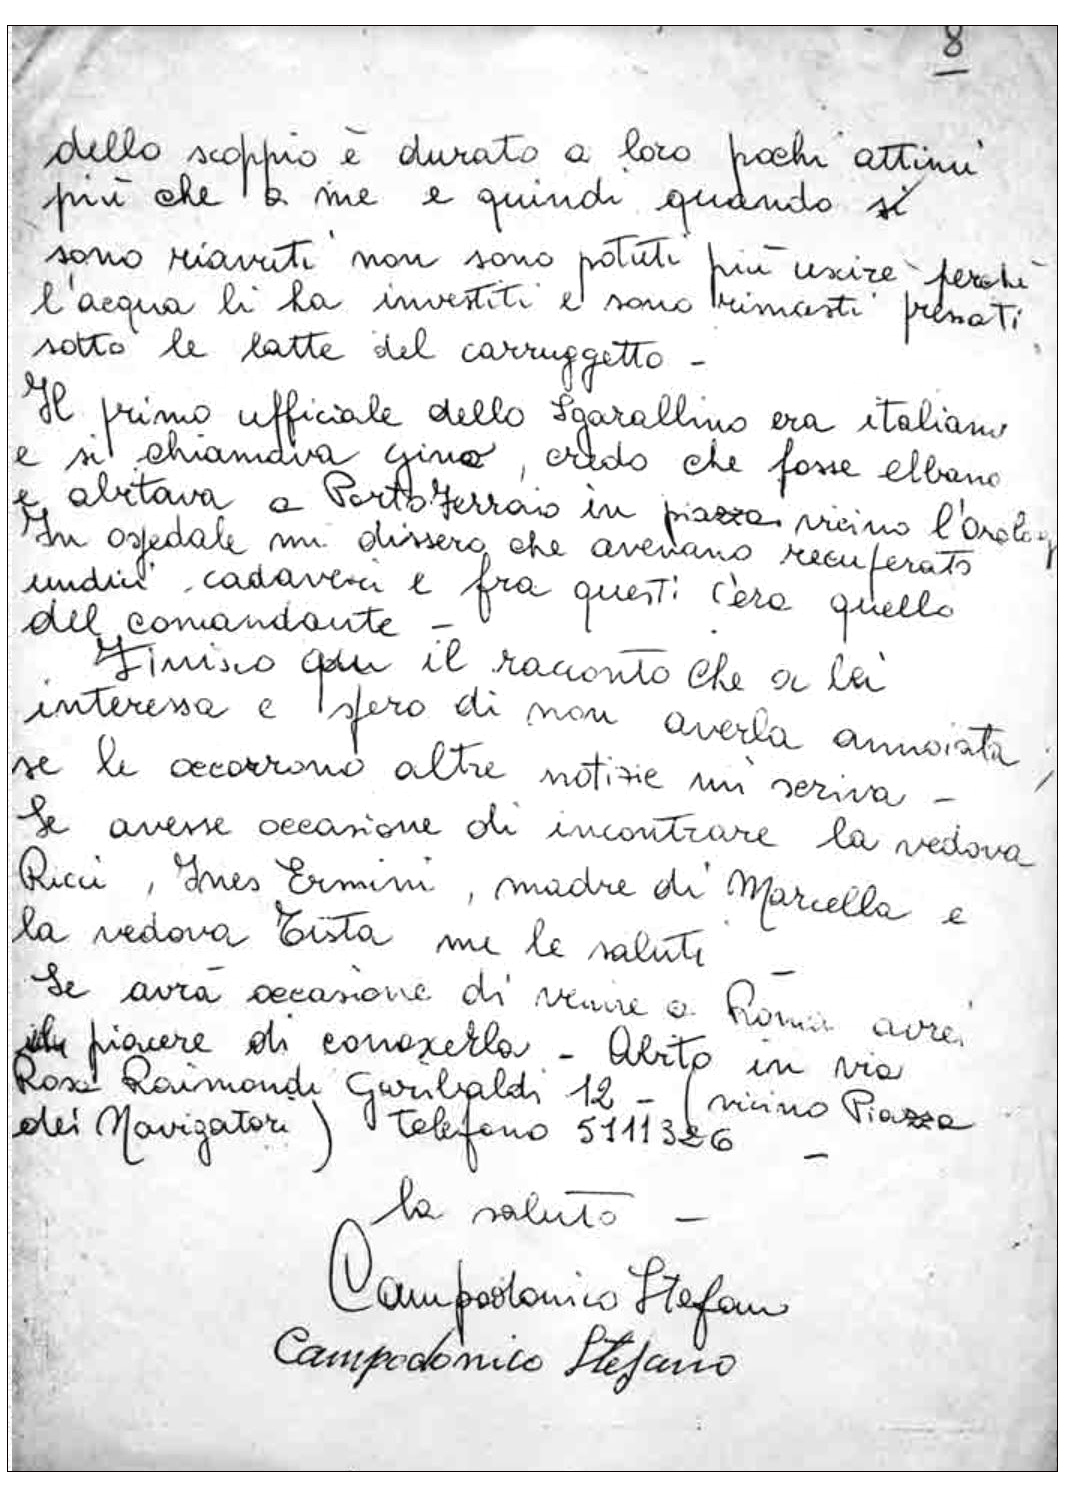 8
dello scoppio è durato a loro pochi attimi
più che a me e quindi quando si
sono riavuti non sono potuti più uscire perchè
l'acqua li ha investiti e sono rimasti pressati
sotto le latte del carruggetto -
Il primo ufficiale dello Sgarallino era italiano
e si chiamava Gino, credo che fosse elbano
e abitava a PortoFerraio in piazza vicino l'Orolog
In ospedale mi dissero che avevano recuperato
undici cadaveri e fra questi c'era quello
del comandante -
Finisco qui il racconto che a lei
interessa e spero di non averla annoiata,
se le occorrono altre notizie mi scriva -
Se avesse occasione di incontrare la vedova
Ricci, Ines Ermini, madre di Marcella e
la vedova Tista me le saluti -
Se avrà occasione di venire a Roma avrei
piacere di conoscerla - Abito in via
Rosa Raimondi Garibaldi 12 - (vicino Piazza
dei Navigatori) telefono 5111326 -
la saluto -
Campodonico Stefano
Campodonico Stefano